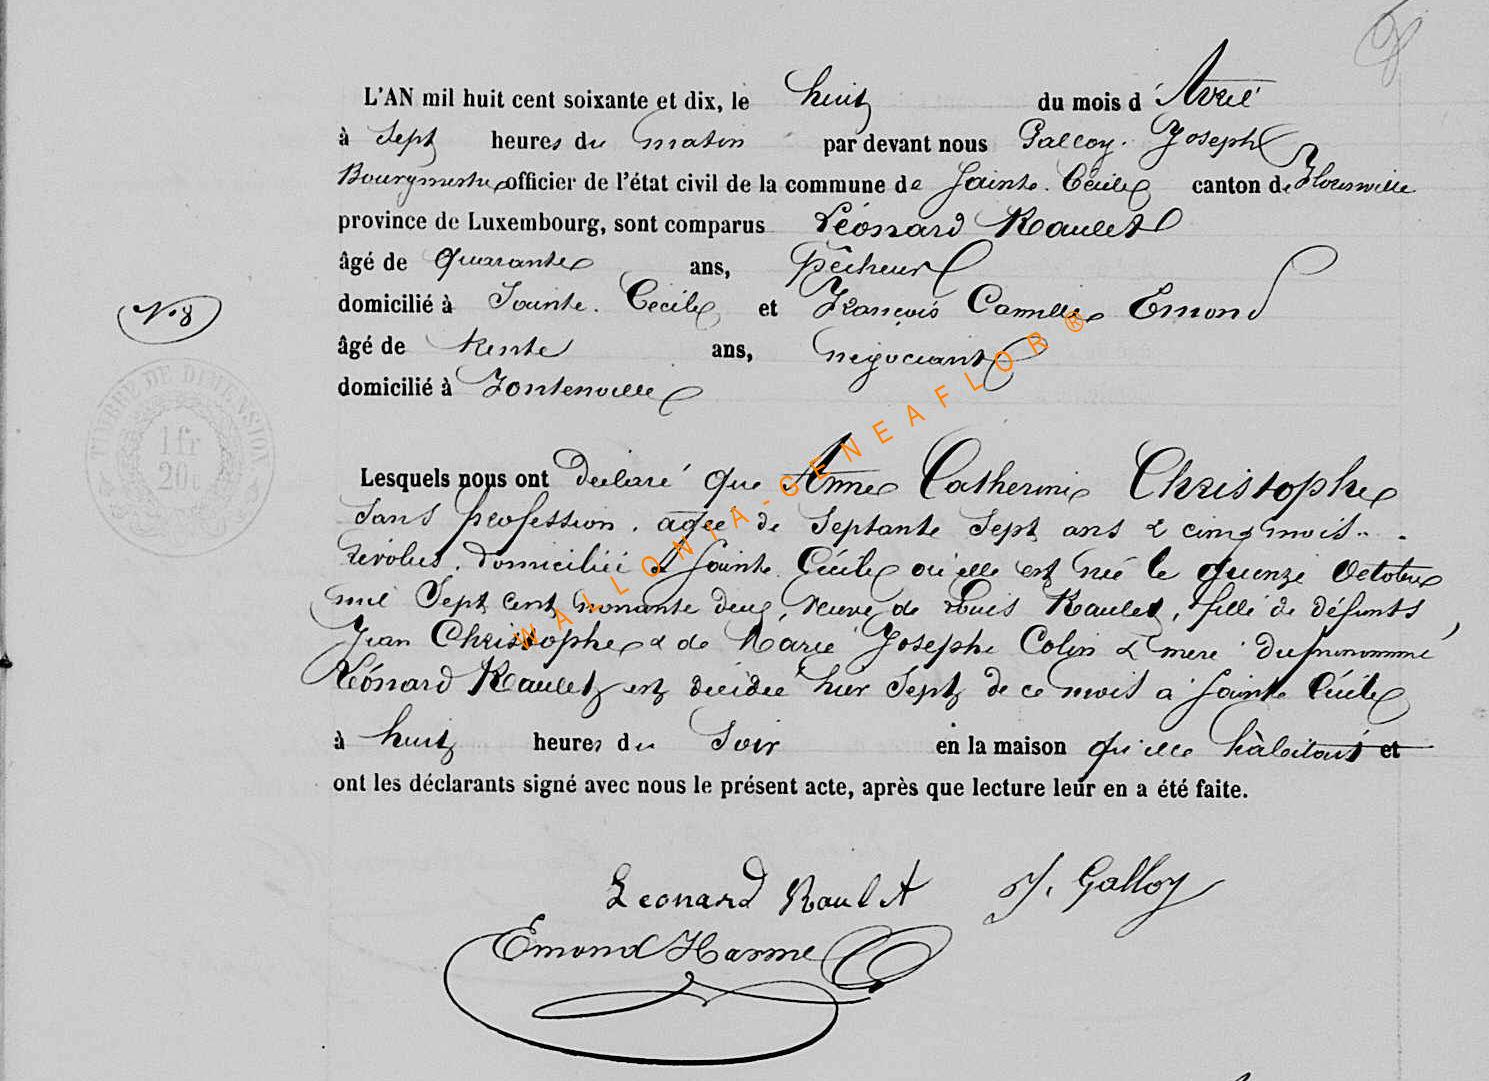 L'AN mil huit cent soixante et dix, le huit du mois d'Avril
à Sept heures du matin par devant nous Galloy Joseph
Bourgmestre officier de l'état civil de la commune de Sainte Cécile canton de Florenville
province de Luxembourg, sont comparus Léonard Raulet
âgé de quarante ans, Pêcheur
domicilié à Sainte Cécile et François Camille Emond
âgé de trente ans, négociant
domicilié à Fontenoille
N° 8
TIMBRE DE DIMENSION
1 fr
20
Lesquels nous ont déclaré que Anne Catherine Christophe
sans profession, agée de septante sept ans & cinq mois
révolus, domiciliée à Sainte Cécile où elle est née le quinze octobre
mil sept cent nonante deux, veuve de Louis Raulet, fille de défunts
Jean Christophe & de Marie Josephe Colin & mère du prénommé
Léonard Raulet est décédée hier sept de ce mois à Sainte Cécile
à huit heures du soir en la maison qu'elle habitait et
ont les déclarants signé avec nous le présent acte, après que lecture leur en a été faite.
Leonard Raulet J. Galloy
Emond Harme
WALLONIA-GENEAFLOR®